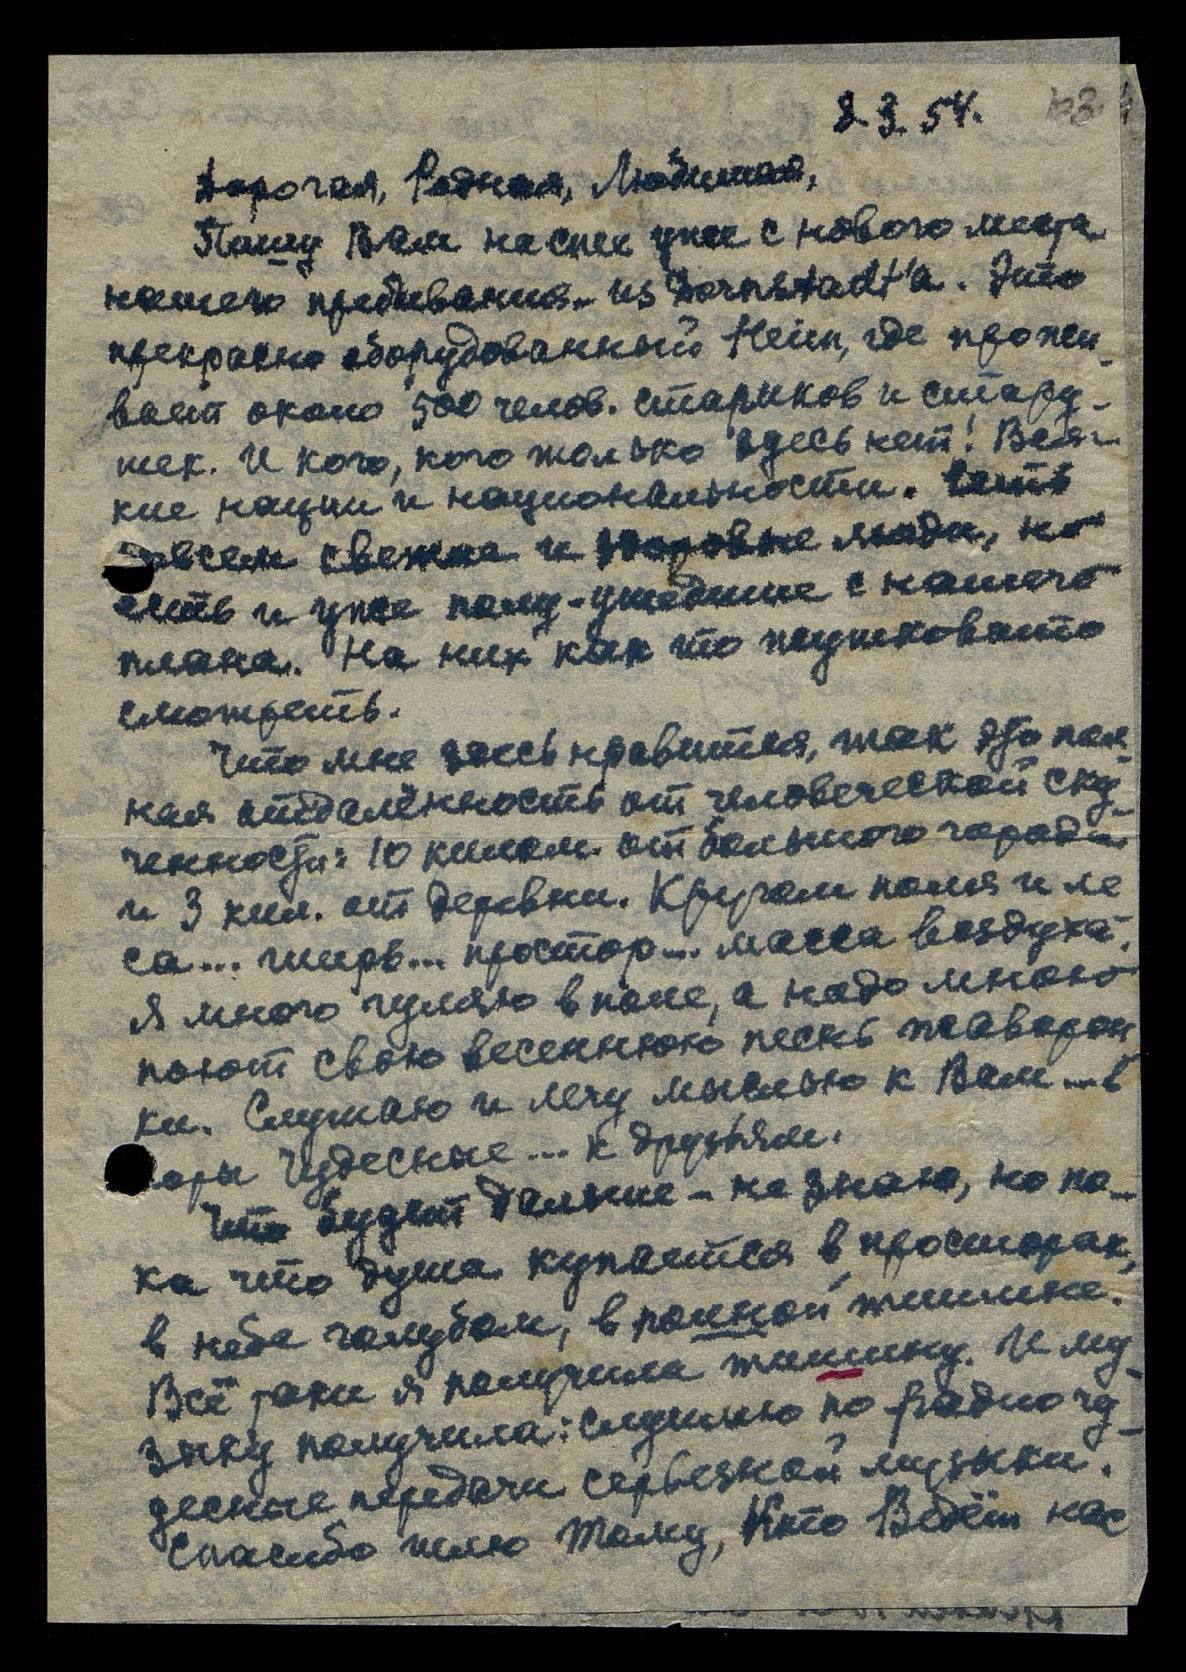 8.3.54.
Дорогая, Родная, Любимая,
Пишу Вам на спех уже с нового места
нашего пребывания - из Dornstadt'а. Это
прекрасно оборудованный Heim, где прожи-
вает около 500 челов. стариков и стару-
шек. И кого, кого только здесь нет! Вся-
кие нации и национальности. Есть
совсем свежие и здоровые люди, но
есть и уже полу-ушедшие с нашего
плана. На них как то жутковато
смотреть.
Что мне здесь нравится, так это пол-
ная отдалённость от человеческой ску-
ченности: 10 килом. от большого города
и 3 кил. от деревни. Кругом поля и ле
са... ширь... простор... масса воздуха.
Я много гуляю в поле, а надо мною
поют свою весеннюю песнь жаворон
ки. Слушаю и лечу мыслью к Вам ... в
горы чудесные ... к друзьям.
Что будет дальше - не знаю, но по-
ка что душа купается в просторах,
в небе голубом, в полной тишине.
Всё таки я получила тишину. И му-
зыку получила: слушаю по радио чу-
десные передачи серьезной музыки.
Спасибо шлю Тому, Кто Ведёт нас